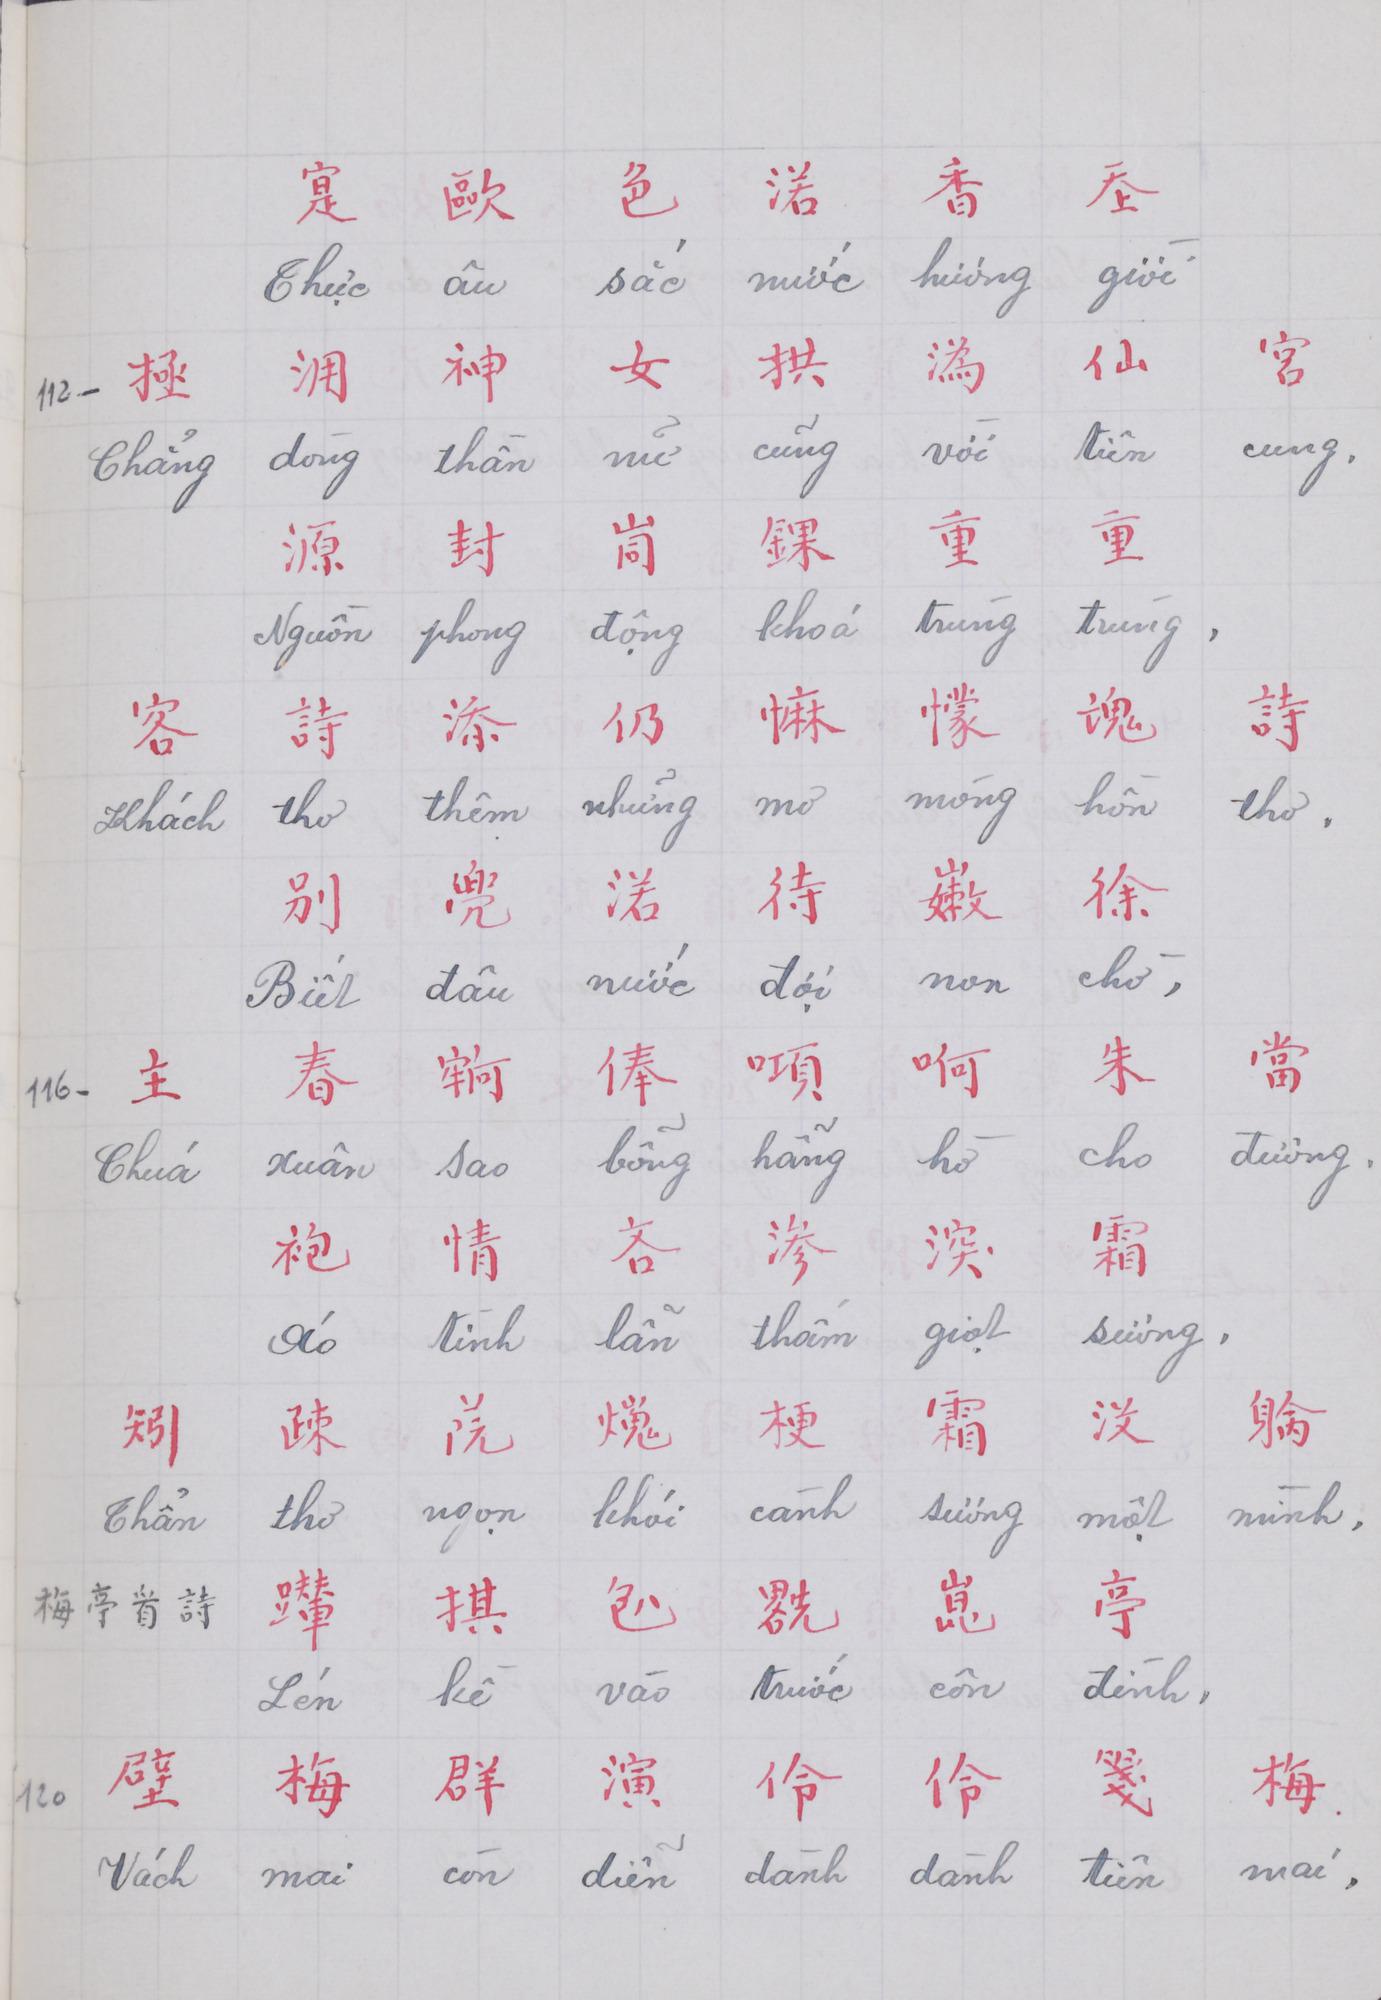 寔 歐 色 渃 香 𡗶
Thực âu sắc nước hương giời
112 - 極 𣳔 神 女 拱 潙 仙 宮
Chẳng dòng thần nữ cũng vời tiên cung.
源 封 峝 錁 重 重
Nguồn phong động khoá trùng trùng,
容 詩 添 仍 㦄 懞 魂 詩
Khách thơ thêm những mơ mòng hồn thơ.
別 兠 渃 待 嫩 徐
Biết đâu nước đợi non chờ,
116 - 主 春 俸 㗂 呵 朱 當
Chúa xuân sao bỗng hẵng hờ cho đương.
袍 情 吝 渗 湥 霜
Áo tình lẫn thấm giọt sương,
矧 疎 梗 霜 没 躺
Thẩn thơ ngọn khói cành sương một mình,
梅 亭 首 詩 掑 亭
Lén kề vào trước côn đình,
120 壁 梅 群 演 伶 伶 箋 梅.
Vách mai còn diễn dành dành tiên mai,